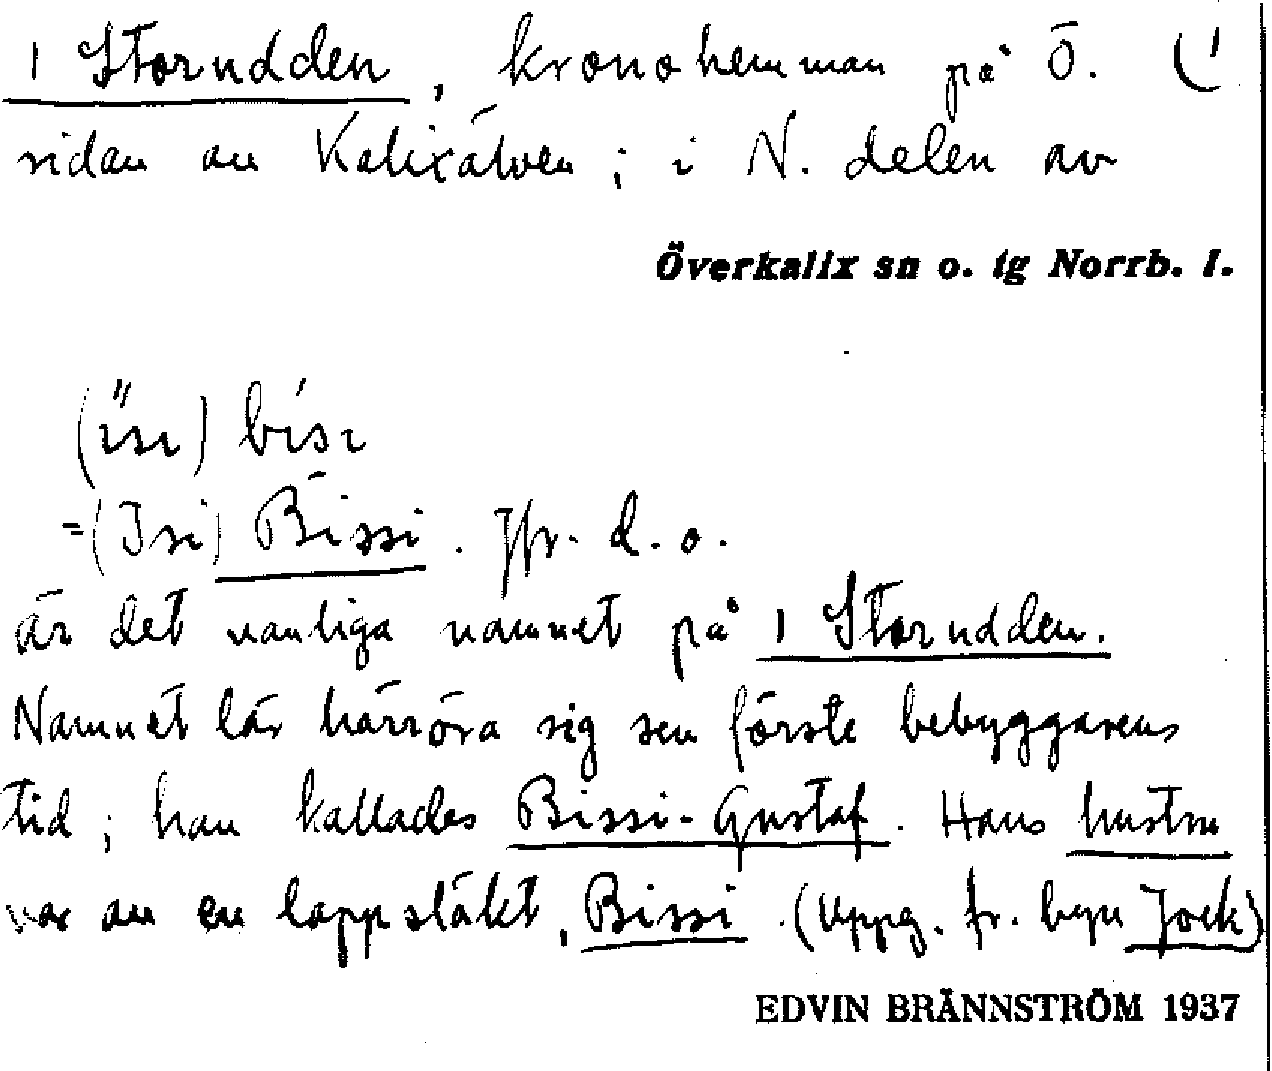 1 Storudden, kronohemman på Ö.
sidan av Kalixälven; i N. delen av
Överkalix sn o. tg Norrb. l.
(isi) bisi
=(Isi) Bissi. Jfr. d. o.
är det vanliga namnet på 1 Storudden.
Namnet lär härröra sig sen förste bebyggarens
tid; han kallades Bissi-Gustaf. Hans hustru
var av en lappsläkt, Bissi. (Uppg. fr. byn Jock)
EDVIN BRÄNNSTRÖM 1937